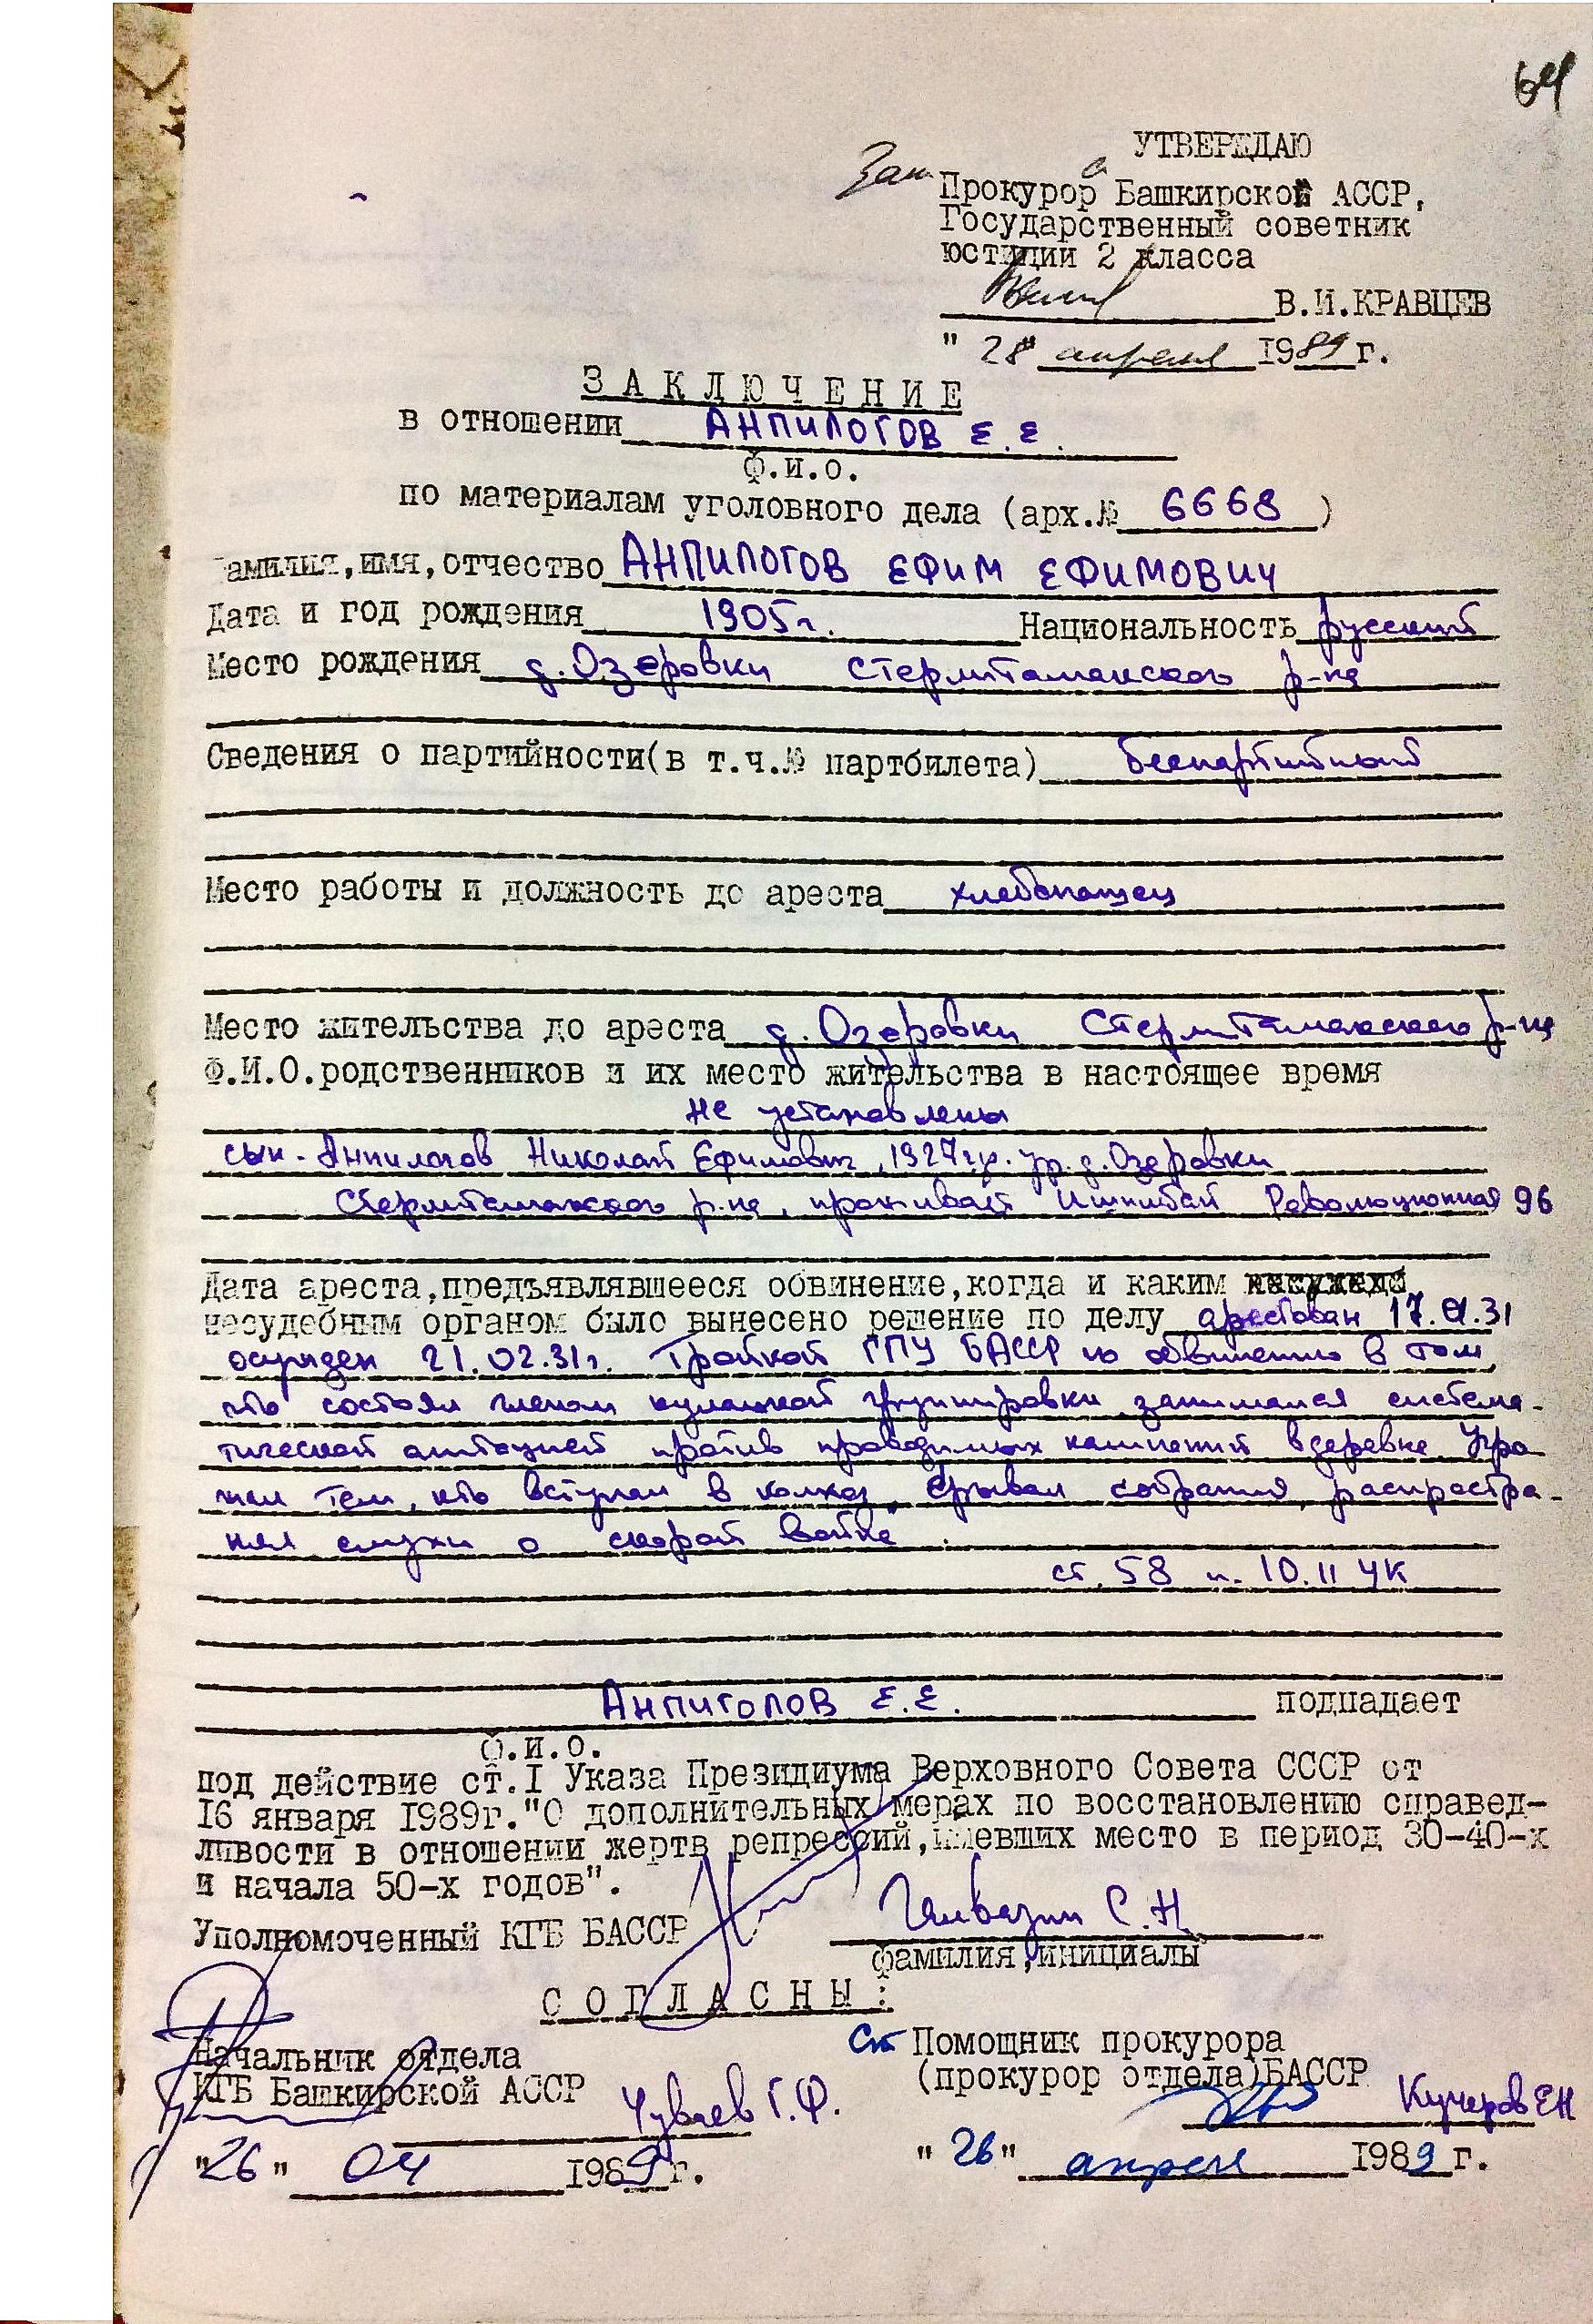 64
УТВЕРЖДАЮ
Зам Прокурора Башкирской АССР,
Государственный советник
юстиции 2 класса
В.И.КРАВЦЕВ
" 28 " апреля 1989 г.
ЗАКЛЮЧЕНИЕ
в отношении АНПИЛОГОВ Е.Е.
Ф.И.О.
по материалам уголовного дела (арх.№ 6668 )
амилия,имя,отчество АНПИЛОГОВ ЕФИМ ЕФИМОВИЧ
Дата и год рождения 1905г. Национальность русский
Место рождения д.Озеровки Стерлитамакского р-на
Сведения о партийности(в т.ч.№ партбилета) беспартийный
Место работы и должность до ареста хлебопашец
Место жительства до ареста д. Озеровки Стерлитамакского р-на
Ф.И.О.родственников и их место жительства в настоящее время
не установлены
сын - Анпилогов Николай Ефимович, 1927г.р. ур. д. Озеровки
Стерлитамакского р-на, проживает Ишимбай Революционная 96
Дата ареста,предъявлявшееся обвинение,когда и каким
несудебным органом было вынесено решение по делу арестован 17.01.31
осужден 21.02.31г. Тройкой ГПУ БАССР по обвинению в том,
что состоял членом кулацкой группировки, занимался система-
тической агитацией против проводимых кампаний в деревне. Угро-
жал тем, кто вступал в колхоз, срывал собрания, распростра-
нял слухи о скорой войне".
ст. 58 п. 10.11 УК
АНПИГОЛОВ Е.Е. подпадает
Ф.И.О.
под действие ст.I Указа Президиума Верховного Совета СССР от
16 января 1989г."О дополнительных мерах по восстановлению справед-
ливости в отношении жертв репрессий,имевших место в период 30-40-х
и начала 50-х годов".
Уполномоченный КГБ БАССР С.Н.
фамилия,инициалы
СОГЛАСНЫ:
Начальник отдела
КГБ Башкирской АССР Чуваев Г.Ф.
"26" 04 1989 г.
Ст Помощник прокурора
(прокурор отдела)БАССР
Кучеров ЕН
" 26 " апреля 1989 г.